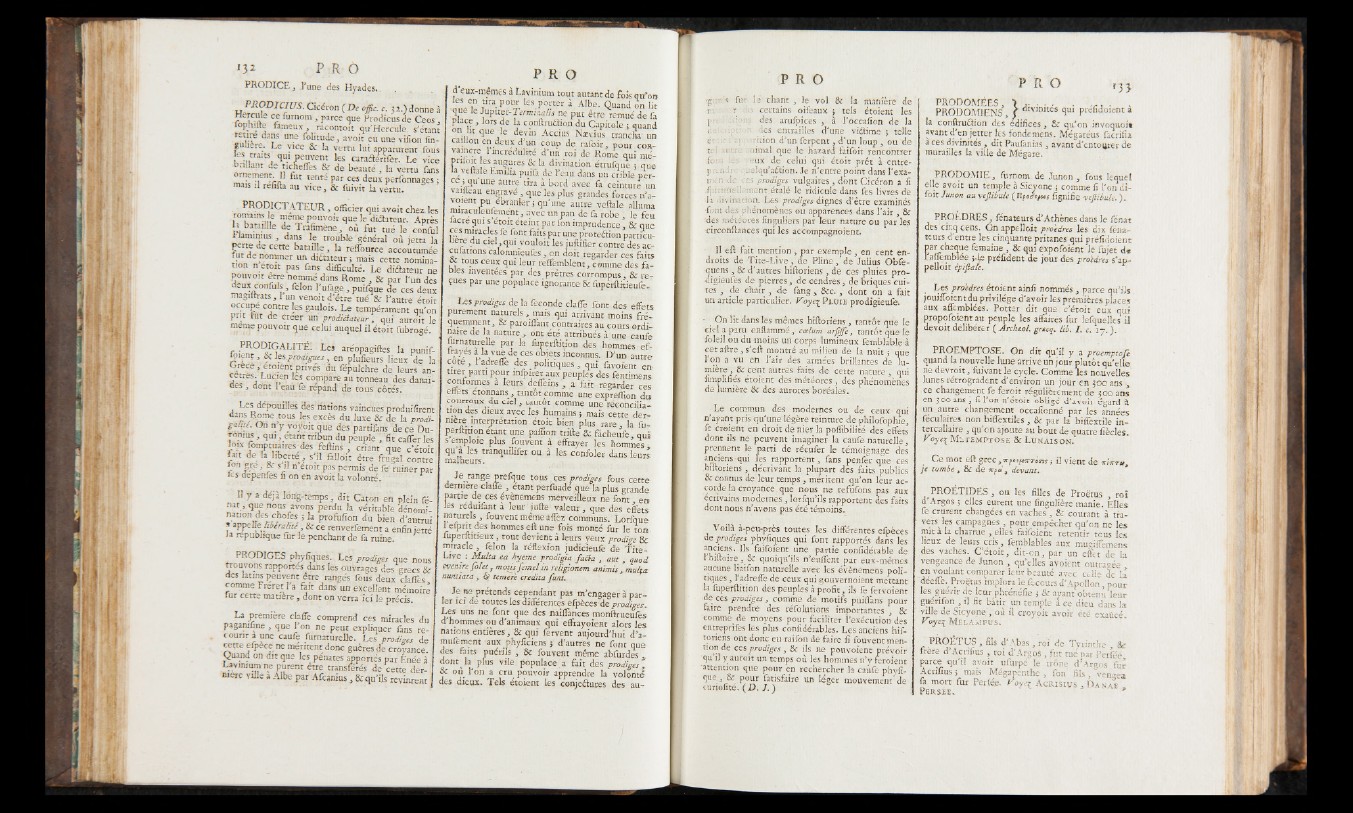 132 P R O
PRODICE, l'une des Hyades.
PRODICIUS. Cicéron (De offic. c. 32.) donne à
Hercule ce surnom, parce que Prodicus de Ceos,
sophiste fameux, racontoit qu'Hercule s'étant
retiré dans une solitude, avoit eu une vision sin-
gulière. Le vice & la vertu lui apparurent sous
les traits qui peuvent les caractériser. Le vice
brillant de richesses & de beauté, la vertu sans
ornement. Il fut tenté par ces deux personnages;
mais il résista au vice, & suivit la vertu.
PRODICTATEUR, officier qui avoit chez les
romains le même pouvoir que le dictateur. Après
la bataillle de Trasimène, où fut tué le consul
Flaminius, dans le trouble général où jetta la
perte de cette bataille, la ressource accoutumée
fut de nommer un dictateur; mais cette nomina-
tion n'étoit pas sans difficulté. Le dictateur ne
pouvoit être nommé dans Rome, & par l'un des
deux consuls, selon l'usage, puisque de ces deux
magistrats, l'un venoit d'être tué & l'autre étoit
occupé contre les gaulois. Le tempérament qu'on
prit fut de créer un prodictateur, qui auroit le
même pouvoir que celui auquel il étoit subrogé.
PRODIGALITÉ. Les aréopagistes la punis-
soient, & les prodigues, en plusieurs lieux de la
Grèce, étoient privés du sépulchre de leurs an-
cêtres. Lucien les compare au tonneau des danaï-
des, dont l'eau se répand de tous côtés.
Les dépouilles des nations vaincues produisirent
dans Rome tous les excès du luxe & de la prodi-
galité. On n'y voyoit que des partisans de ce Du-
ronius, qui, étant tribun du peuple, fit casser les
loix somptuaires des festins, criant que c'étoit
fait de la liberté, s'il falloit être frugal contre
son gré, & s'il n'étoit pas permis de se ruiner par
ses dépenses si on en avoit la volonté.
Il y a déjà long-temps, dit Caton en plein sé-
nat, que nous avons perdu la véritable dénomi-
nation des choses; la profusion du bien d'autrui
s'appelle libéralité, & ce renversement a enfin jetté
la république sur le penchant de sa ruine.
PRODIGES physiques. Les prodiges que nous
trouvons rapportés dans les ouvrages des grecs &
des latins peuvent être rangés sous deux classes,
comme Fréret l'a fait dans un excellent mémoire
sur cette matière, dont on verra ici le précis.
La première classe comprend ces miracles du
paganisme, que l'on ne peut expliquer sans re-
courir à une cause surnaturelle. Les prodiges de
cette espèce ne méritent donc guères de croyance.
Quand on dit que les pénates apportés par Énée à
Lavinium ne purent être transférés de cette der-
nière ville à Albe par Ascanius, & qu'ils revinrent
P R O
d'eux-mêmes à Lavinium tout autant de fois qu'on
les en tira pour les porter à Albe. Quand on lit
que le Jupiter-Terminalis ne put être remué de sa
place, lors de la construction du Capitole; quand
on lit que le devin Accius Nævius trancha un
caillou en deux d'un coup de rasoir, pour con-
vaincre l'incrédulité d'un roi de Rome qui mé-
prisoit les augures & la divination étrusque; que
la vestale Emilia puisa de l'eau dans un crible per-
cé; qu'une autre tira à bord avec sa ceinture un
vaisseau engravé, que les plus grandes forces n'a-
voient pu ébranler; qu'une autre vestale alluma
miraculeusement, avec un pan de sa robe, le feu
sacré qui s'étoit éteint par son imprudence, & que
ces miracles se sont faits par une protection particu-
lière du ciel, qui vouloit les justifier contre des ac-
cusations calomnieuses, on doit regarder ces faits
& tous ceux qui leur ressemblent, comme des fa-
bles inventées par des prêtres corrompus, & re-
çues par une populace ignorante & superstitieuse.
Les prodiges de la seconde classe sont des effets
purement naturels, mais qui arrivant moins fré-
quemment, & paroissant contraires au cours ordi-
naire de la nature, ont été attribués à une cause
surnaturelle par la superstition des hommes ef-
frayés à la vue de ces objets inconnus. D'un autre
côté, l'adresse des politiques, qui savoient en
tirer parti pour inspirer aux peuples des sentimens
conformes à leurs desseins, a fait regarder ces
effets étonnans, tantôt comme une expression du
courroux du ciel, tantôt comme une réconcilia-
tion des dieux avec les humains; mais cette der-
nière interprétation étoit bien plus rare, la su-
perstition étant une passion triste & fâcheuse, qui
s'emploie plus souvent à effrayer les hommes,
qu'à les tranquiliser ou à les consoler dans leurs
malheurs.
Je range presque tous ces prodiges sous cette
dernière classe, étant persuadé que la plus grande
partie de ces événemens merveilleux ne sont, en
les réduisant à leur juste valeur, que des effets
naturels, souvent même assez communs. Lorsque
l'esprit des hommes est une fois monté sur le ton
superstitieux, tout devient à leurs yeux prodige &
miracle, selon la réflexion judicieuse de Tite-
Live: Multa ea hyeme prodigia facta, aut, quod
evenire solet, motis semel in religionem animis, multa
nuntiata, & temerè credita sunt.
Je ne prétends cependant pas m'engager à par-
ler ici de toutes les différentes espèces de prodiges.
Les uns ne sont que des naissances monstrueuses
d'hommes ou d'animaux qui effrayoient alors les
nations entières, & qui servent aujourd'hui d'a-
musement aux physiciens; d'autres ne sont que
des faits puérils, & souvent même absurdes,
dont la plus vile populace a fait des prodiges,
& où l'on a cru pouvoir apprendre la volonté
des dieux. Tels étoient les conjectures des au-
P R O
sur le chant, le vol & la manière de
certains oiseaux; tels étoient les
des aruspices, à l'occasion de la
des entrailles d'une victime; telle
d'un serpent, d'un loup, ou de
animal que le hazard faisoit rencontrer
yeux de celui qui étoit prêt à entre-
quelqu'action. Je n'entre point dans l'exa-
prodiges vulgaires, dont Cicéron a si
étalé le ridicule dans ses livres de
la divination. Les prodiges dignes d'être examinés
sont des phénomènes ou apparences dans l'air, &
des météores singuliers par leur nature ou par les
circonstances qui les accompagnoient.
Il est fait mention, par exemple, en cent en-
droits de Tite-Live, de Pline, de Julius Obse-
quens, & d'autres historiens, de ces pluies pro-
digieuses de pierres, de cendres, de briques cui-
tes, de chair, de sang, &c., dont on a fait
un article particulier. Voyez PLUIE prodigieuse.
On lit dans les mêmes historiens, tantôt que le
ciel a paru enflammé, cœlum arsisse, tantôt que le
soleil ou du moins un corps lumineux semblable à
cet astre, s'est montré au milieu de la nuit; que
l'on a vu en l'air des armées brillantes de lu-
mière, & cent autres faits de cette nature, qui
simplifiés étoient des météores, des phénomènes
de lumière & des aurores boréales.
Le commun des modernes ou de ceux qui
n'ayant pris qu'une légère teinture de philosophie,
se croient en droit de nier la possibilité des effets
dont ils ne peuvent imaginer la cause naturelle,
prennent le parti de récuser le témoignage des
anciens qui les rapportent, sans penser que ces
historiens, décrivant la plupart des faits publics
& connus de leur temps, méritent qu'on leur ac-
corde la croyance que nous ne refusons pas aux
écrivains modernes, lorsqu'ils rapportent des faits
dont nous n'avons pas été témoins.
Voilà à-peu-près toutes les différentes espèces
de prodiges physiques qui sont rapportés dans les
anciens. Ils faisoient une partie considérable de
l'histoire, & quoiqu'ils n'eussent par eux-mêmes
aucune liaison naturelle avec les événemens poli-
tiques, l'adresse de ceux qui gouvernoient mettant
la superstition des peuples à profit, ils se servoient
de ces prodiges, comme de motifs puissans pour
faire prendre des résolutions importantes, &
comme de moyens pour faciliter l'exécution des
entreprises les plus considérables. Les anciens his-
toriens ont donc eu raison de faire si souvent men-
tion de ces prodiges, & ils ne pouvoient prévoir
qu'il y auroit un temps où les hommes n'y feroient
attention que pour en rechercher la cause physi-
que, & pour satisfaire un léger mouvement de
curiosité. (D. J.)
P R O 133
PRODOMÉES,
PRODOMIENS, } divinités qui présidoient à
la construction des édifices, & qu'on invoquoit
avant d'en jetter les fondemens. Mégaréus sacrifia
à ces divinités, dit Pausanias, avant d'entourer de
murailles la ville de Mégare.
PRODOMIE, surnom de Junon, sous lequel
elle avoit un temple à Sicyone; comme si l'on di-
soit Junon au vestibule (Προδομος signifie vestibule.).
PROÈDRES, sénateurs d'Athènes dans le sénat
des cinq cens. On appelloit proèdres les dix séna-
teurs d'entre les cinquante pritanes qui présidoient
par chaque semaine, & qui exposoient le sujet de
l'assemblée; le président de jour des proèdres s'ap-
pelloit épistate.
Les proèdres étoient ainsi nommés, parce qu'ils
jouissoient du privilége d'avoir les premières places
aux assemblées. Potter dit que c'étoit eux qui
proposoient au peuple les affaires sur lesquelles il
devoit délibérer (Archæol. græcq. lib. I. c. 17.).
PROEMPTOSE. On dit qu'il y a proemptose
quand la nouvelle lune arrive un jour plutôt qu'elle
ne devroit, suivant le cycle. Comme les nouvelles
lunes rétrogradent d'environ un jour en 300 ans,
ce changement se feroit régulièrement de 300 ans
en 300 ans, si l'on n'étoit obligé d'avoir égard à
un autre changement occasionné par les années
séculaires non bissextiles, & par la bissextile in-
tercallaire, qu'on ajoute au bout de quatre siècles.
Voyez MÉTEMPTOSE & LUNAISON.
Ce mot est grec, προεμπτωσις; il vient de πιπτω,
je tombe, & de προ, devant.
PROÉTIDES, ou les filles de Proëtus, roi
d'Argos; elles eurent une singulière manie. Elles
se crurent changées en vaches, & courant à tra-
vers les campagnes, pour empêcher qu'on ne les
mît à la charrue, elles faisoient retentir tous les
lieux de leurs cris, semblables aux mugissemens
des vaches. C'étoit, dit-on, par un effet de la
vengeance de Junon, qu'elles avoient outragée,
en voulant comparer leur beauté avec celle de la
déesse. Proëtus implora le secours d'Apollon, pour
les guérir de leur phrénésie, & ayant obtenu leur
guérison, il fit bâtir un temple à ce dieu dans la
ville de Sicyone, où il croyoit avoir été exaucé.
Voyez MÉLAMPUS.
PROÉTUS, fils d'Abas, roi de Tyrinthe, &
frère d'Acrisius, roi d'Argos, fut tué par Persée,
parce qu'il avoit usurpé le trône d'Argos sur
Acrisius; mais Mégapenthe, son fils, vengea
sa mort sur Persée. Voyez ACRISIUS, DANAÉ,
PERSÉE.